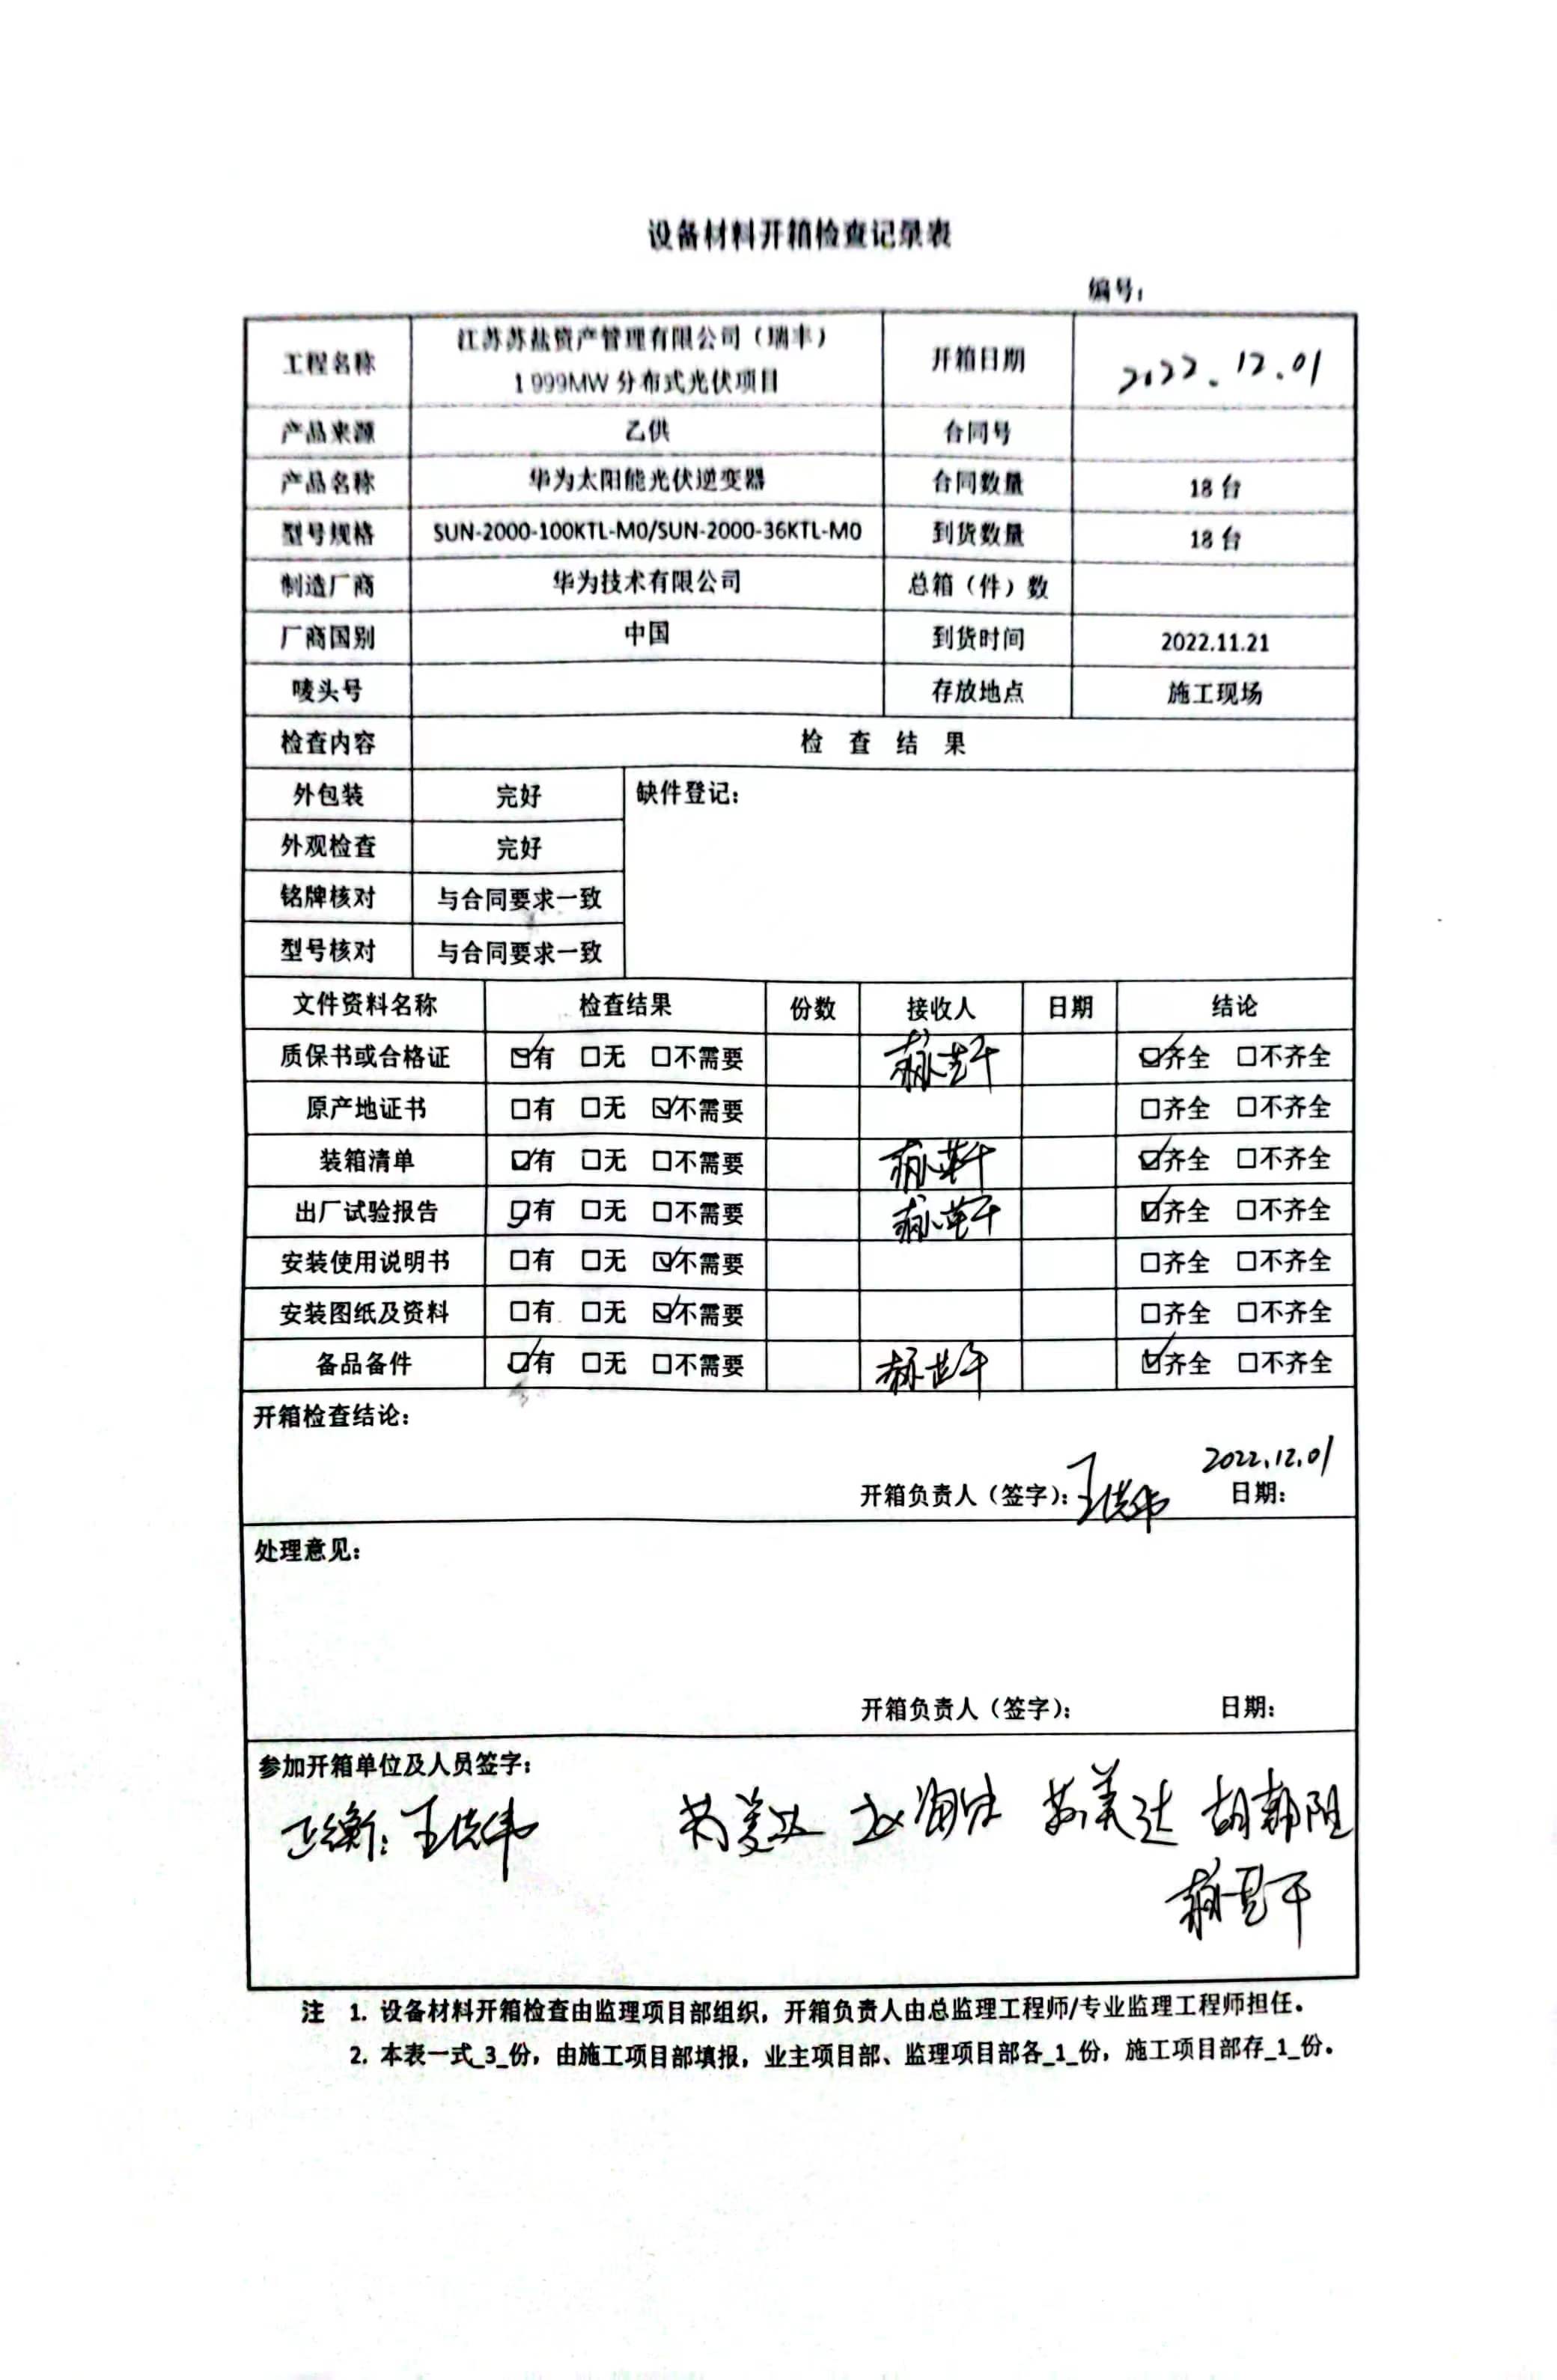 设备材料开箱检查记录表
编号：
工程名称 江苏苏盐资产管理有限公司（瑞丰） 1.999MW 分布式光伏项目 开箱日期 2022.12.01
产品来源 乙供 合同号
产品名称 华为太阳能光伏逆变器 合同数量 18 台
型号规格 SUN-2000-100KTL-M0/SUN-2000-36KTL-M0 到货数量 18 台
制造厂商 华为技术有限公司 总箱（件）数
厂商国别 中国 到货时间 2022.11.21
唛头号 存放地点 施工现场
检查内容 检 查 结 果
外包装 完好 缺件登记：
外观检查 完好
铭牌核对 与合同要求一致
型号核对 与合同要求一致
文件资料名称 检查结果 份数 接收人 日期 结论
质保书或合格证 ☑有 □无 □不需要 ☑齐全 □不齐全
原产地证书 □有 □无 ☑不需要 □齐全 □不齐全
装箱清单 ☑有 □无 □不需要 ☑齐全 □不齐全
出厂试验报告 ☑有 □无 □不需要 ☑齐全 □不齐全
安装使用说明书 □有 □无 ☑不需要 □齐全 □不齐全
安装图纸及资料 □有 □无 ☑不需要 □齐全 □不齐全
备品备件 ☑有 □无 □不需要 ☑齐全 □不齐全
开箱检查结论：
2022.12.01
开箱负责人（签字）： 日期：
处理意见：
开箱负责人（签字）： 日期：
参加开箱单位及人员签字：
正衡： 苏美达 苏美达
注 1. 设备材料开箱检查由监理项目部组织，开箱负责人由总监理工程师/专业监理工程师担任。
2. 本表一式_3_份，由施工项目部填报，业主项目部、监理项目部各_1_份，施工项目部存_1_份。